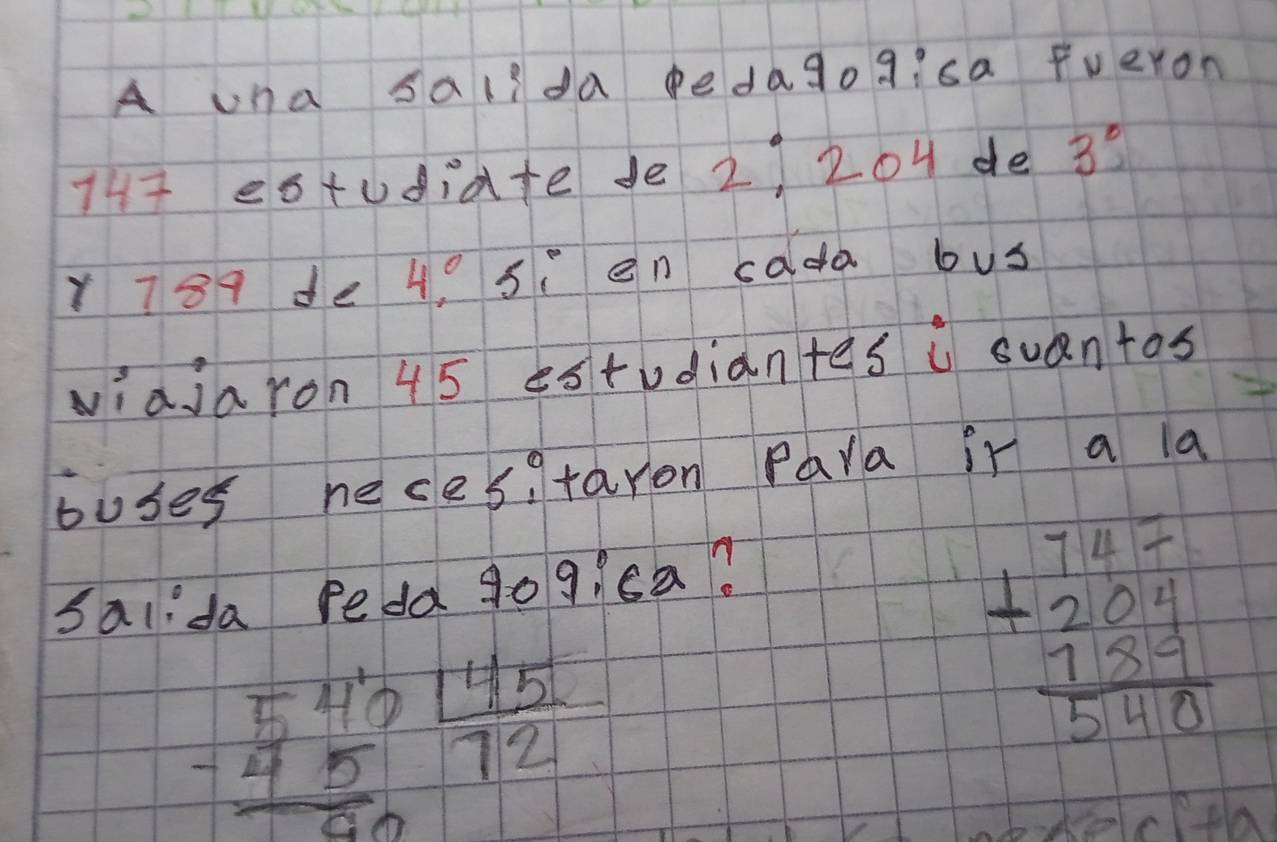 A una salida pedagogica Fueron
147 estudiate de 2°, 204 de 3°
Y 189 de 4°. si en cada bus
viajaron 45 estudiantes ¿ cuantos
buses necesitaron Para ir a la
salida Pedagogica?
147
+ 204
189
540
540 45
- 45 12
90